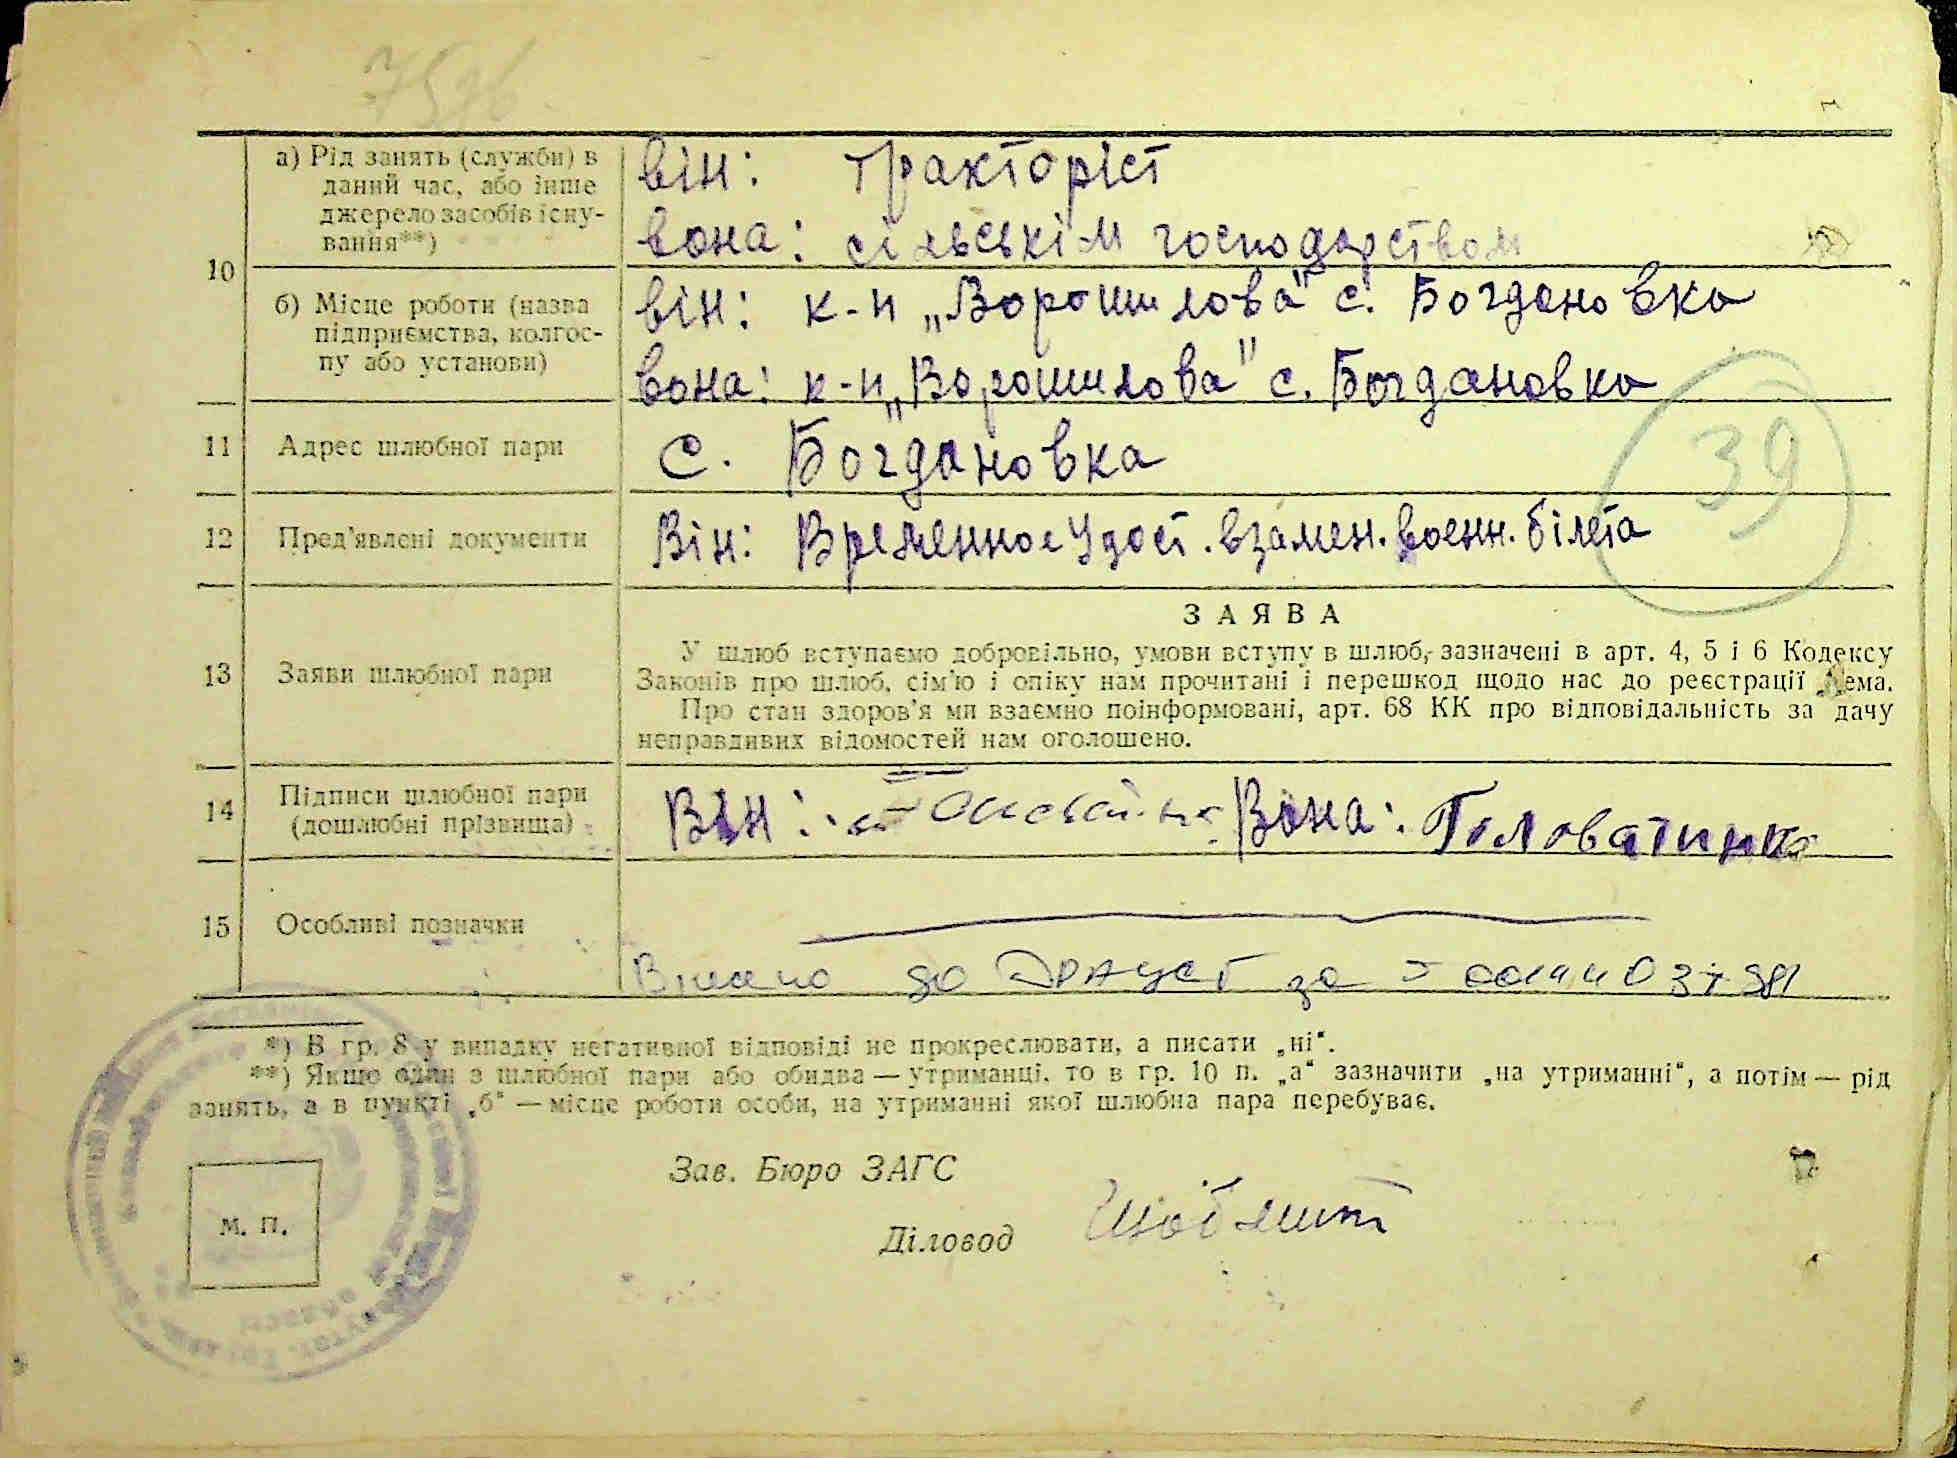 7576
10
а) Рід занять (служби) в
даний час, або інше
джерело засобів існу-
вання**)
він: тракторіст
вона: сільськім господарством
б) Місце роботи (назва
підприємства, колгос-
пу або установи)
він: к-п „Ворошилова" с. Богдановка
вона: к-п „Ворошилова" с. Богдановка
11 Адрес шлюбної пари
с. Богдановка
39
12 Пред'явлені документи
Він: Временное Удост. взамен. военн. білета
13 Заяви шлюбної пари
ЗАЯВА
У шлюб вступаємо добровільно, умови вступу в шлюб, зазначені в арт. 4, 5 і 6 Кодексу
Законів про шлюб, сім'ю і опіку нам прочитані і перешкод щодо нас до реєстрації нема.
Про стан здоров'я ми взаємно поінформовані, арт. 68 КК про відповідальність за дачу
неправдивих відомостей нам оголошено.
14 Підписи шлюбної пари
(дошлюбні прізвища)
Він: Вона: Головатинко
15 Особливі позначки
Внесено до ДРАЦСГ за
*) В гр. 8 у випадку негативної відповіді не прокреслювати, а писати „ні".
**) Якщо один з шлюбної пари або обидва — утриманці, то в гр. 10 п. „а" зазначити „на утриманні", а потім — рід
занять, а в пункті „б" — місце роботи особи, на утриманні якої шлюбна пара перебуває.
Зав. Бюро ЗАГС
М. П.
Діловод